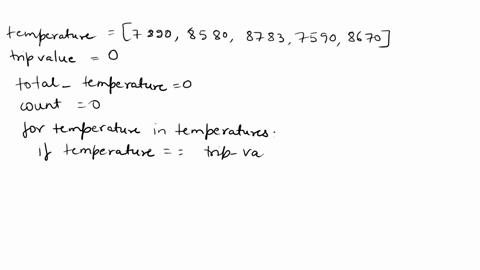 temperature = [7890, 8580, 8783, 7590, 8670]
trip value = 0
total_temperature = 0
count = 0
for temperature in temperatures.
if temperature == trip-va